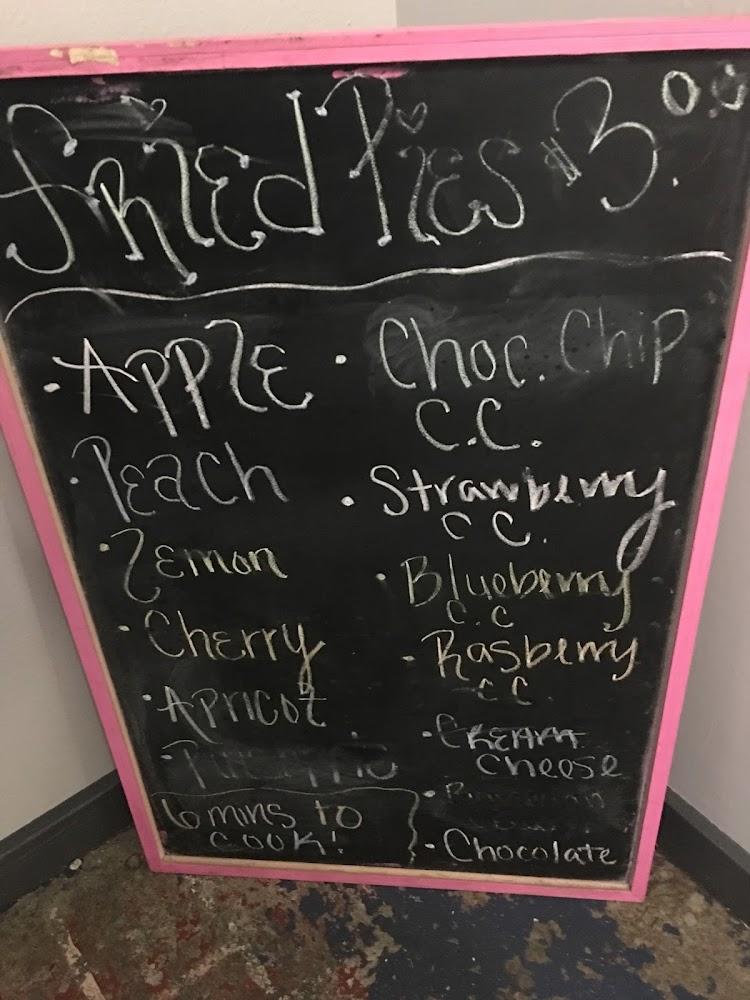 Fried Pies $3.00
· Apple
· Peach
· Lemon
· Cherry
· Apricot
6 mins to
cook!
· Choc. Chip
C.C.
· Strawberry
C C.
· Blueberry
C.C
· Rasberry
C C.
· Cream
Cheese
· Chocolate